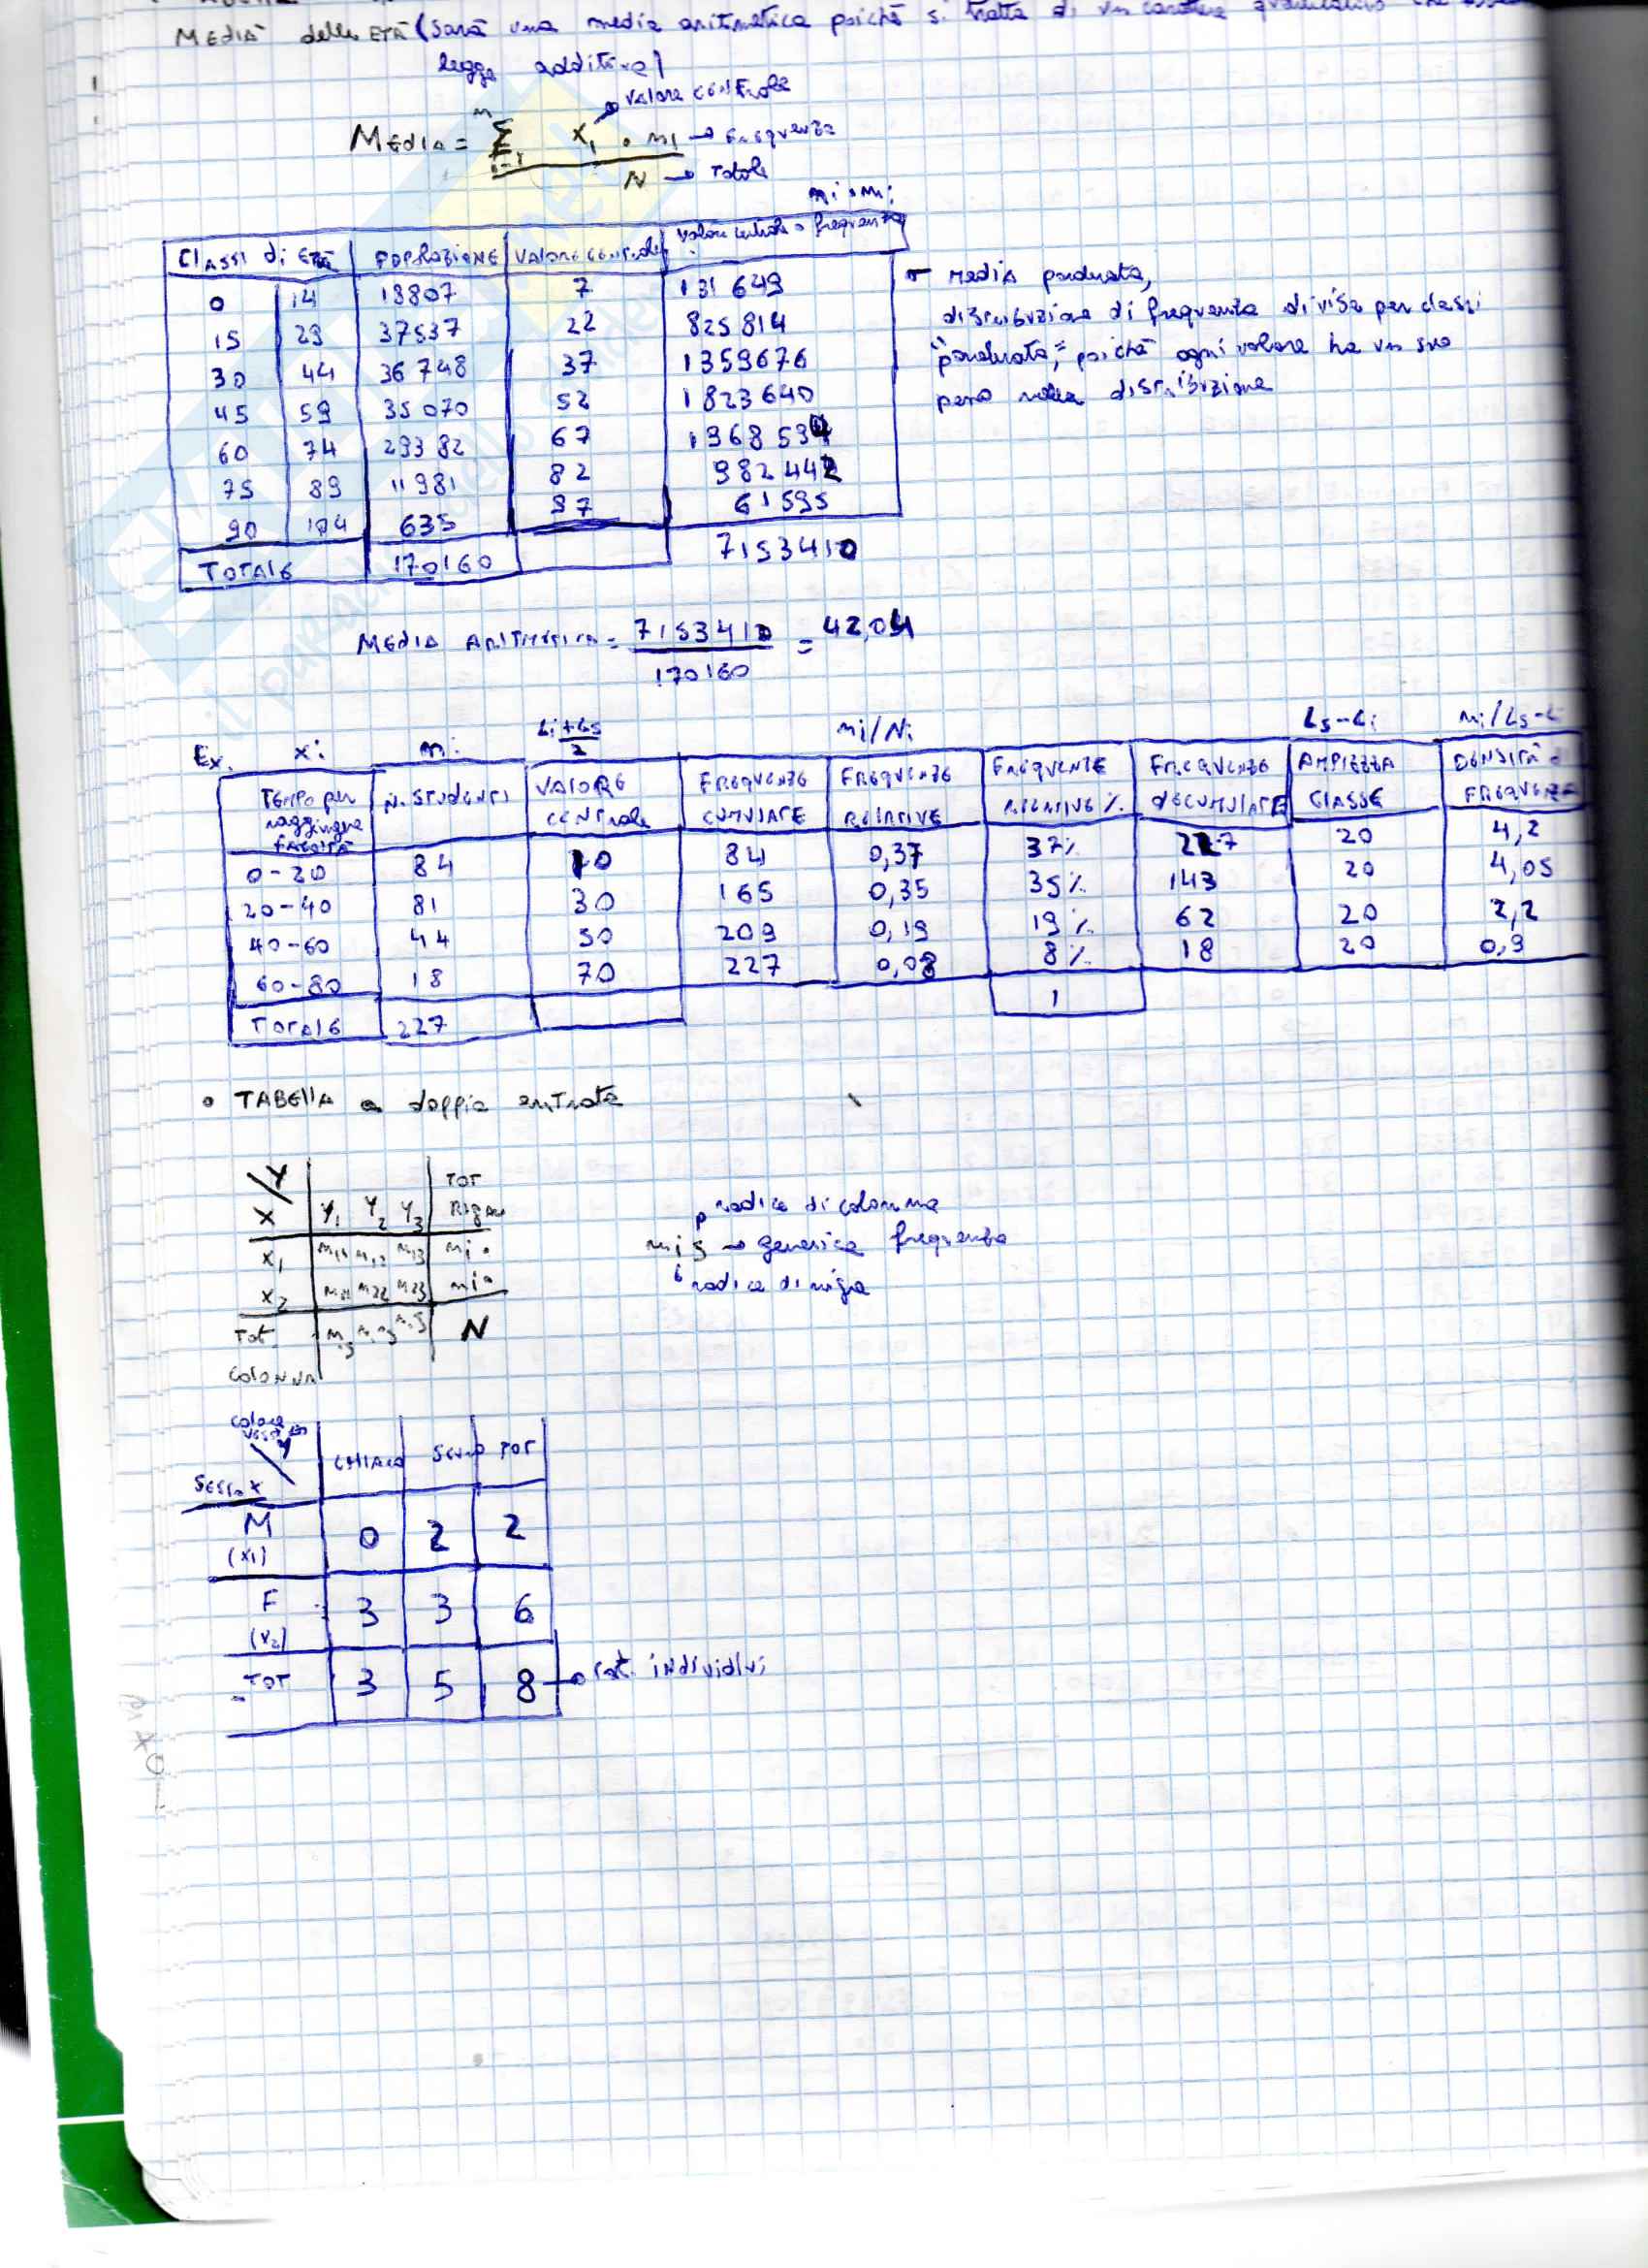 MEDIA delle ETÀ (sarà una media aritmetica poichè si tratta di un carattere
legge additiva)
valore centrale
MEDIA = Σ x₁ · n₁ → frequenza
N → Totale
ni · mi
Classi di età | POPOLAZIONE | VALORE CENTRALE | Valore centrale · frequenza
0 | 14 | 18807 | 7 | 131649
15 | 29 | 37537 | 22 | 825814
30 | 44 | 36748 | 37 | 1359676
45 | 59 | 35070 | 52 | 1823640
60 | 74 | 29382 | 67 | 1968594
75 | 89 | 11981 | 82 | 982442
90 | 104 | 635 | 97 | 61595
TOTALE | 170160 | 7153410
→ Media ponderata,
distribuzione di frequenza divisa per classi
"ponderata", poichè ogni valore ha un suo
peso nella distribuzione
MEDIA ARITMETICA = 7153410 / 170160 = 42,04
Ex. xi | ni | Li+Ls / 2 | ni/N | Ls-Li | ni/Ls-L
Tempo per raggiungere facoltà | N. STUDENTI | VALORE CENTRALE | FREQUENZE CUMULATE | FREQUENZE RELATIVE | FREQUENZE RELATIVE % | FREQUENZE DECUMULATE | AMPIEZZA CLASSE | DENSITÀ FREQUENZA
0-20 | 84 | 10 | 84 | 0,37 | 37% | 227 | 20 | 4,2
20-40 | 81 | 30 | 165 | 0,35 | 35% | 143 | 20 | 4,05
40-60 | 44 | 50 | 209 | 0,19 | 19% | 62 | 20 | 2,2
60-80 | 18 | 70 | 227 | 0,08 | 8% | 18 | 20 | 0,9
TOTALE | 227 | 1
• TABELLA a doppia entrata
Y | TOT
X | Y₁ Y₂ Y₃ | RIGA
x₁ | n₁₁ n₁₂ n₁₃ | ni•
x₂ | n₂₁ n₂₂ n₂₃ | ni•
Tot. | N
COLONNA
radice di colonna
nij → generica frequenza
radice di riga
colore
Y | CHIARO | SCURO | TOT
SESSO X
M (x₁) | 0 | 2 | 2
F (x₂) | 3 | 3 | 6
TOT | 3 | 5 | 8 → tot. individui